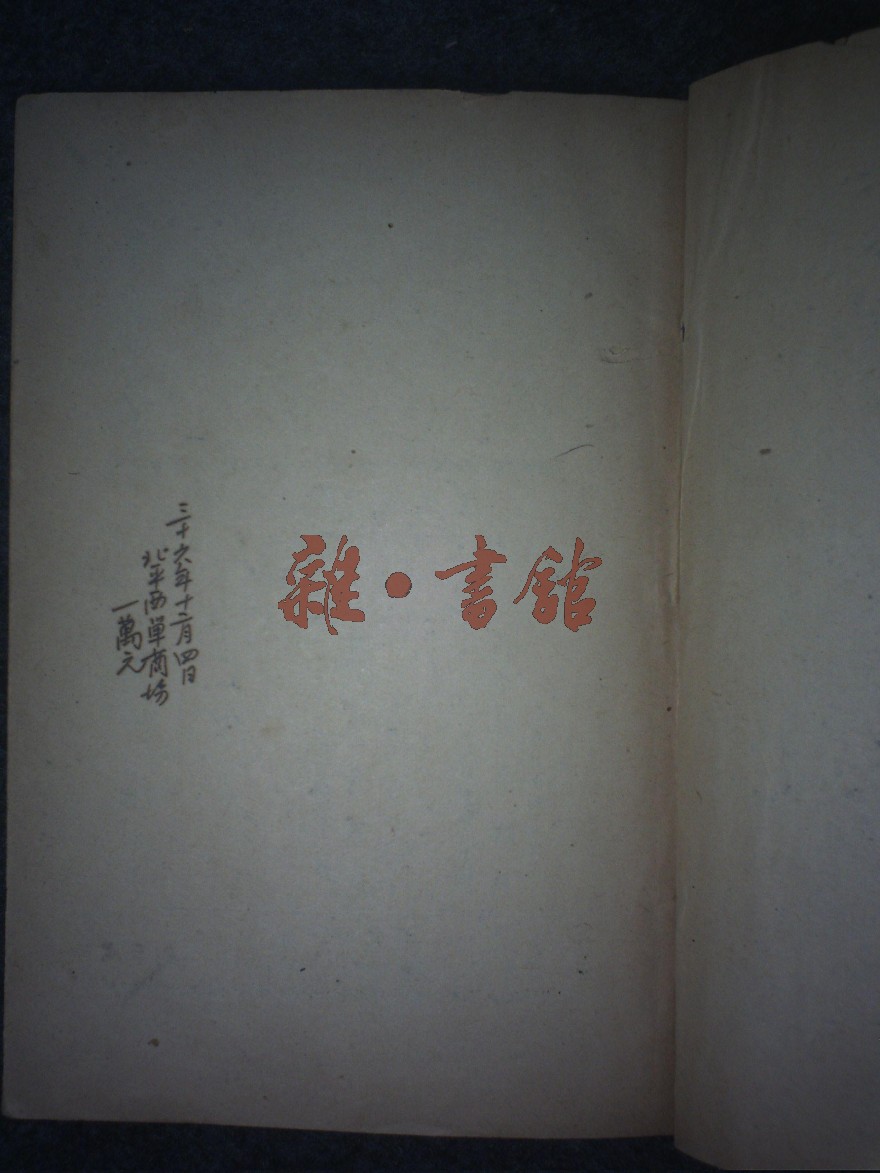 三十六年十二月四日
北平西單商場
一萬元
雜·書館